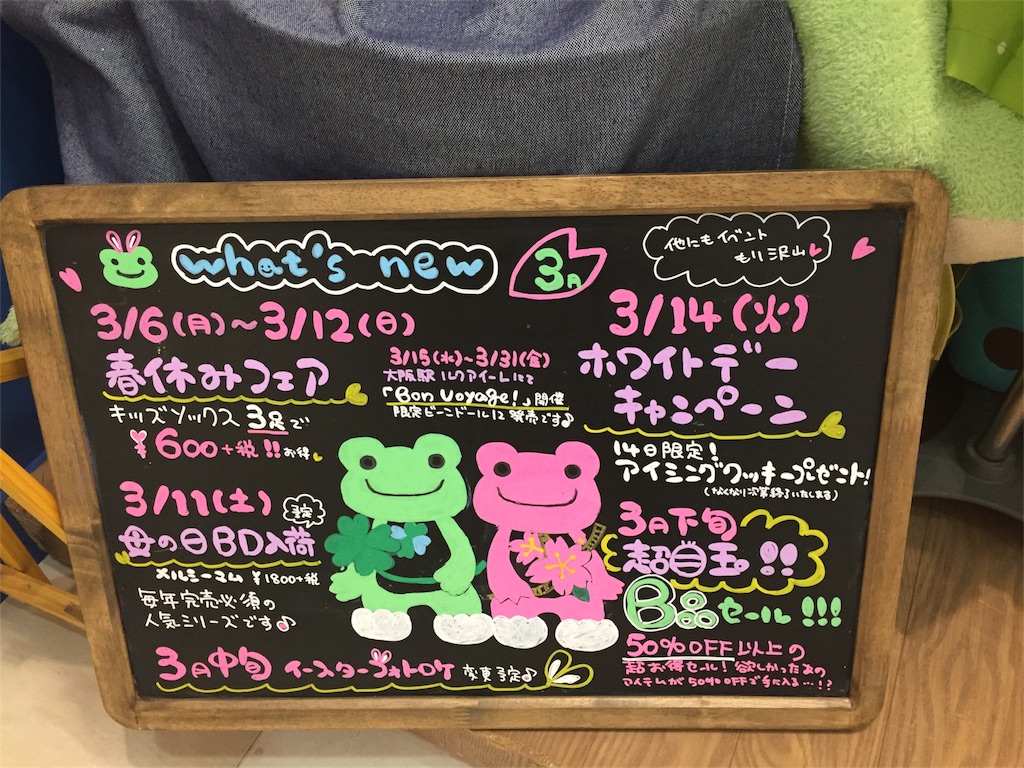 what's new
3月
他にもイベント
もり沢山
3/6(月)~3/12(日)
春休みフェア
キッズソックス 3足で
¥600+税!!お得
3/15(水)~3/31(金)
大阪駅ルクアイーレにて
「Bon voyage!」開催
限定ビーンドール発売です♪
3/14(火)
ホワイトデー
キャンペーン
14日限定!
アイシングクッキープレゼント!
(なくなり次第終了いたします)
3/11(土) 予定
母の日BD入荷
メルシーマム ¥1800+税
毎年完売必須の
人気シリーズです♪
3月中旬 イースターフォトロケ 変更予定♪
3月下旬
超目玉!!
B品セール!!!
50%OFF以上の
超お得セール!欲しかったあの
アイテムが50%OFFで手に入る…!?